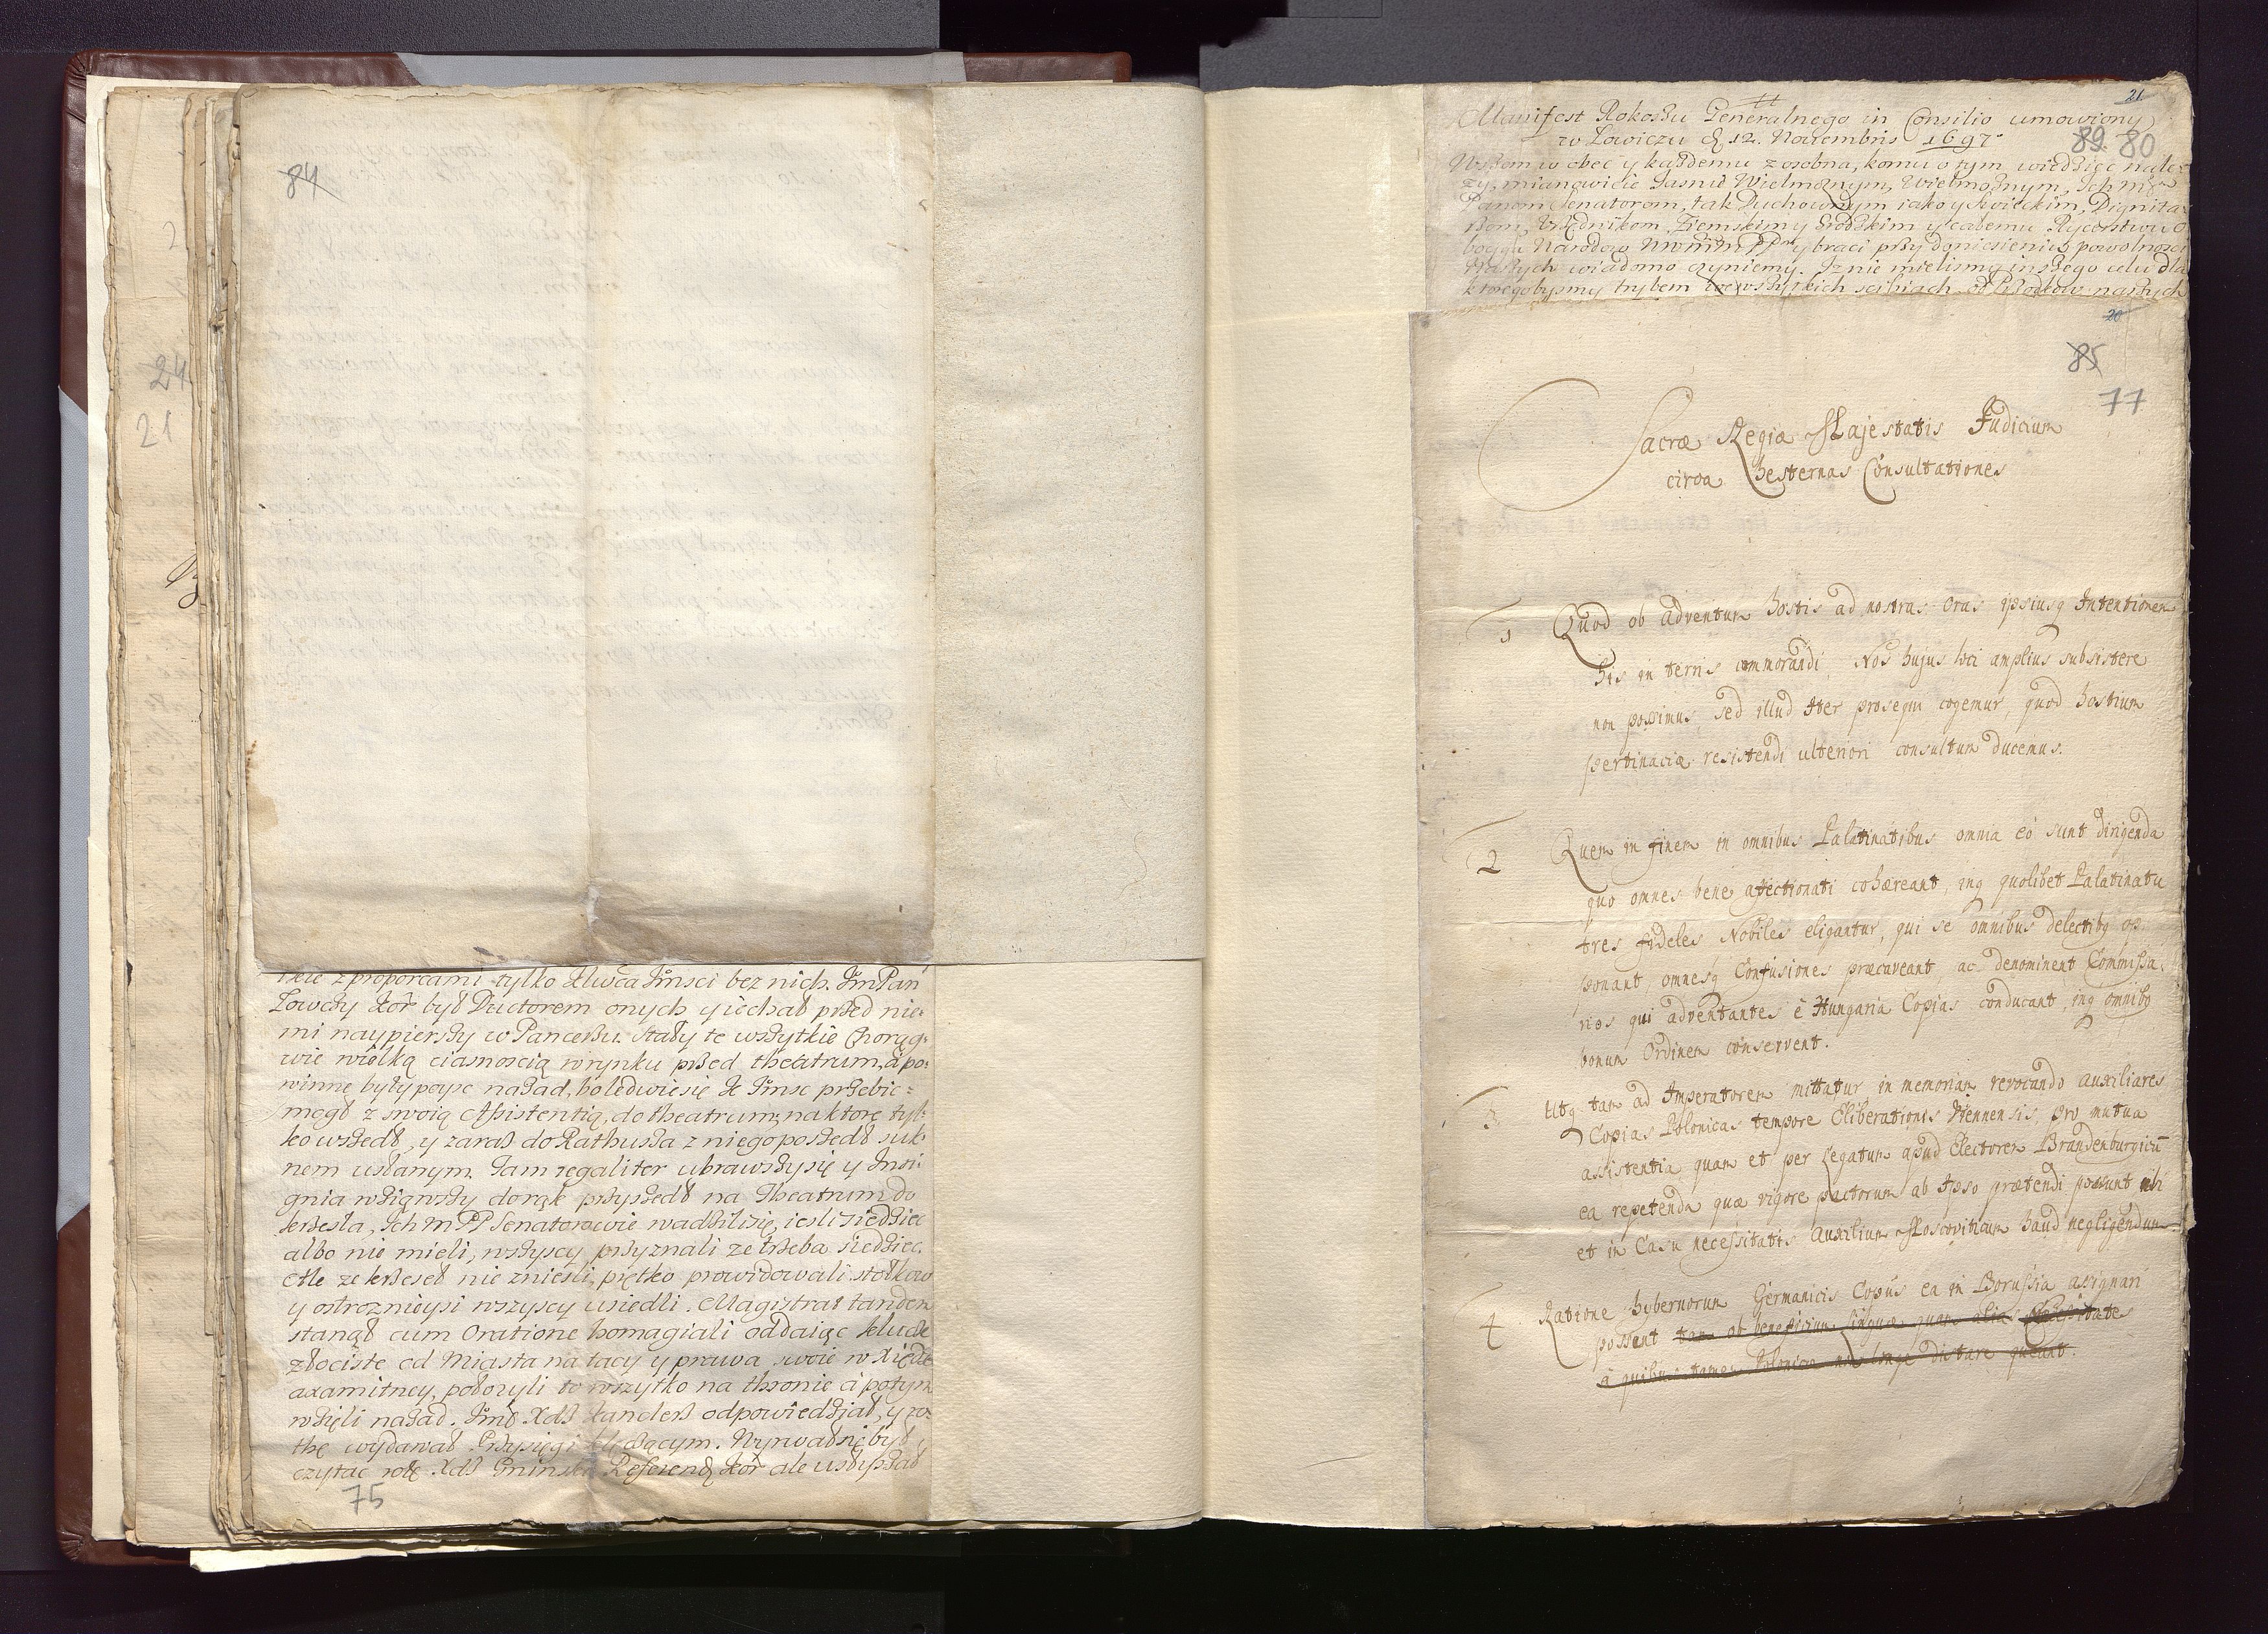 84
24
21
tylko Ełwca Jmsci bez nich. Jm Pan
Łowczy Kor był Ductorem onych y iechał przed nie:
mi naypierszy w Pancerzu. Stały te wszytkie Chorąg:
wie wielką ciasnoscią w rynku przed theatrum, a po:
winne były poysc nazad, bo ledwie się K Jmsc przebic
mogł z swoią Assistentią, do theatrum, na ktore tyl:
ko wszedł, y zaraz do Rathusza z niego poszedł suk:
nem usłanym. Tam regaliter ubrawszy się y Insi:
gnia wziąwszy do rąk przyszedł na Theatrum do
krzesła, Ich m PP Senatorowie wadzili się, iesli siedziec
albo nie mieli, wszyscy przyznali ze trzeba siedziec.
Ale ze krzeseł nie zniesli, prętko prowidowali stołkow
y ostroznieysi wszyscy usiedli. Magistrat tandem
stanął cum Oratione homagiali oddaiąc klucze
złociste od Miasta na tacy y prawa swoie w Xiędze
axamitney, połozyli to wszytko na thronie a potym
wzięli nazad. Jmc Xdz Kanclerz odpowiedział, y ro:
thę wydawał Przysięgi klęczącym. Wyrwał się był
czytac rotę Xdz Gninski Referend Kor ale usłyszał
75
Manifest Rokoszu Generalnego in Consilio umowiony
w Łowiczu d 12. Novembris 1697
21
89. 80
Wszem w obec y kazdemu z osobna, komu o tym wiedziec nale:
zy, mianowicie Jasnie Wielmoznym, Wielmoznym, Ich Mm
Panom Senatorom, tak Duchownym iako y Swieckim, Dignita:
rzom, Urzędnikom, Ziemskim y Grodzkim y całemu Rycerstwu o
boyga Narodow PP y braci przy doniesieniu powolnosci
Naszych wiadomo czyniemy. Iz nie mielismy inszego celu dla
ktoregobysmy trybem we wszytkich od Przodkow naszych
20
85
77
Sacræ Regiæ Majestatis Judicium
circa hesternas Consultationes
1 Quod ob adventum hostis ad nostras oras ipsiusq Intentionem
his in terris commorandi, Nos hujus loci amplius subsistere
non possimus, sed illud Iter prosequi cogemur, quod hostium
pertinaciæ resistendi ulteriori consultum ducemus.
2 Quem in finem in omnibus Palatinatibus omnia eó sunt dirigenda
quo omnes bene affectionati cohæreant, inq quolibet Palatinatu
tres fideles Nobiles eligantur, qui se omnibus delectibq op:
ponant, omnesq Confusiones præcaveant, ac denominent Commissa:
rios qui adventantes è Hungaria Copias conducant, inq omnibq
bonum Ordinem conservent.
3 Utq tam ad Imperatorem mittatur in memoriam revocando auxiliares
Copias Polonicas tempore Eliberationis Viennensis, pro mutua
assistentia quam et per Legatum apud Electorem Brandenburgicū
ea repetenda quæ vigore pactorum ab Ipso prætendi possunt ubi
et in Casu necessitatis Auxilium Moscoviticum haud negligendum
4 Ratione hybernorum Germanicis Copiis ea in Borussia assignari
possent tam ob beneficium linguæ quam alias Necessitates
à quibus tamen Polonicæ non longe distare queant.